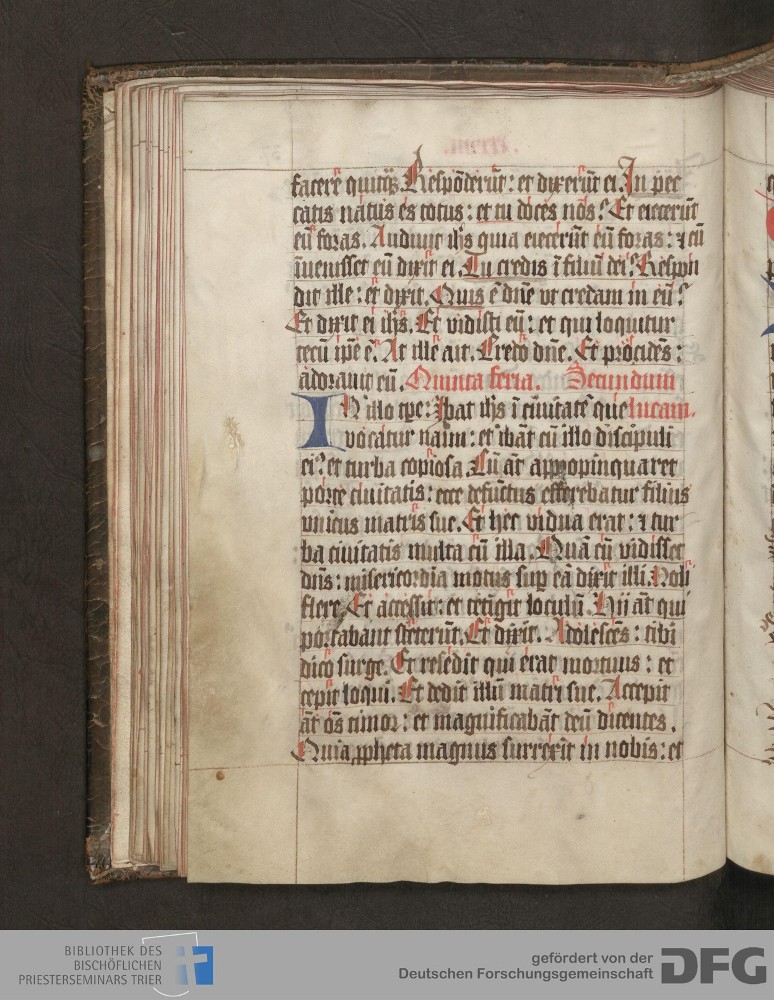 facere quicq̃. Respõderũt: et dixerũt ei. In pec
catis natus es totus: et tu doces nos? Et eiecerũt
eũ foras. Audiuit ihs̃ quia eiecerũt eũ foras: ⁊ cũ
ĩuenisset eũ dixit ei. Tu credis ĩ filiũ dei? Respon
dit ille: et dixit. Quis ẽ dñe vt credam in eũ?
Et dixit ei ihs̃. Et vidisti eũ: et qui loquitur
tecũ ip̃e ẽ. At ille ait. Credo dñe. Et procidẽs:
adorauit eũ. Quinta feria. Secundum
IN illo tp̃e: Ibat ihs̃ ĩ ciuitatẽ que lucam.
vocatur naim: et ibãt cũ illo discipuli
ei᷒: et turba copiosa. Cũ aũt appropinquaret
porte ciuitatis: ecce defunctus efferebatur filius
vnicus matris sue. Et hec vidua erat: ⁊ tur
ba ciuitatis multa cũ illa. Quã cũ vidisset
dñs: misericordia motus sup eã dixit illi. Noli
flere. Et accessit: et tetigit loculũ. Hii aũt qui
portabant steterũt. Et dixit. Adolescẽs: tibi
dico surge. Et resedit qui erat mortuus: et
cepit loqui. Et dedit illũ matri sue. Accepit
aũt oẽs timor: et magnificabãt deũ dicentes.
Quia ꝓpheta magnus surrexit in nobis: et
BIBLIOTHEK DES
BISCHÖFLICHEN
PRIESTERSEMINARS TRIER
gefördert von der
Deutschen Forschungsgemeinschaft DFG